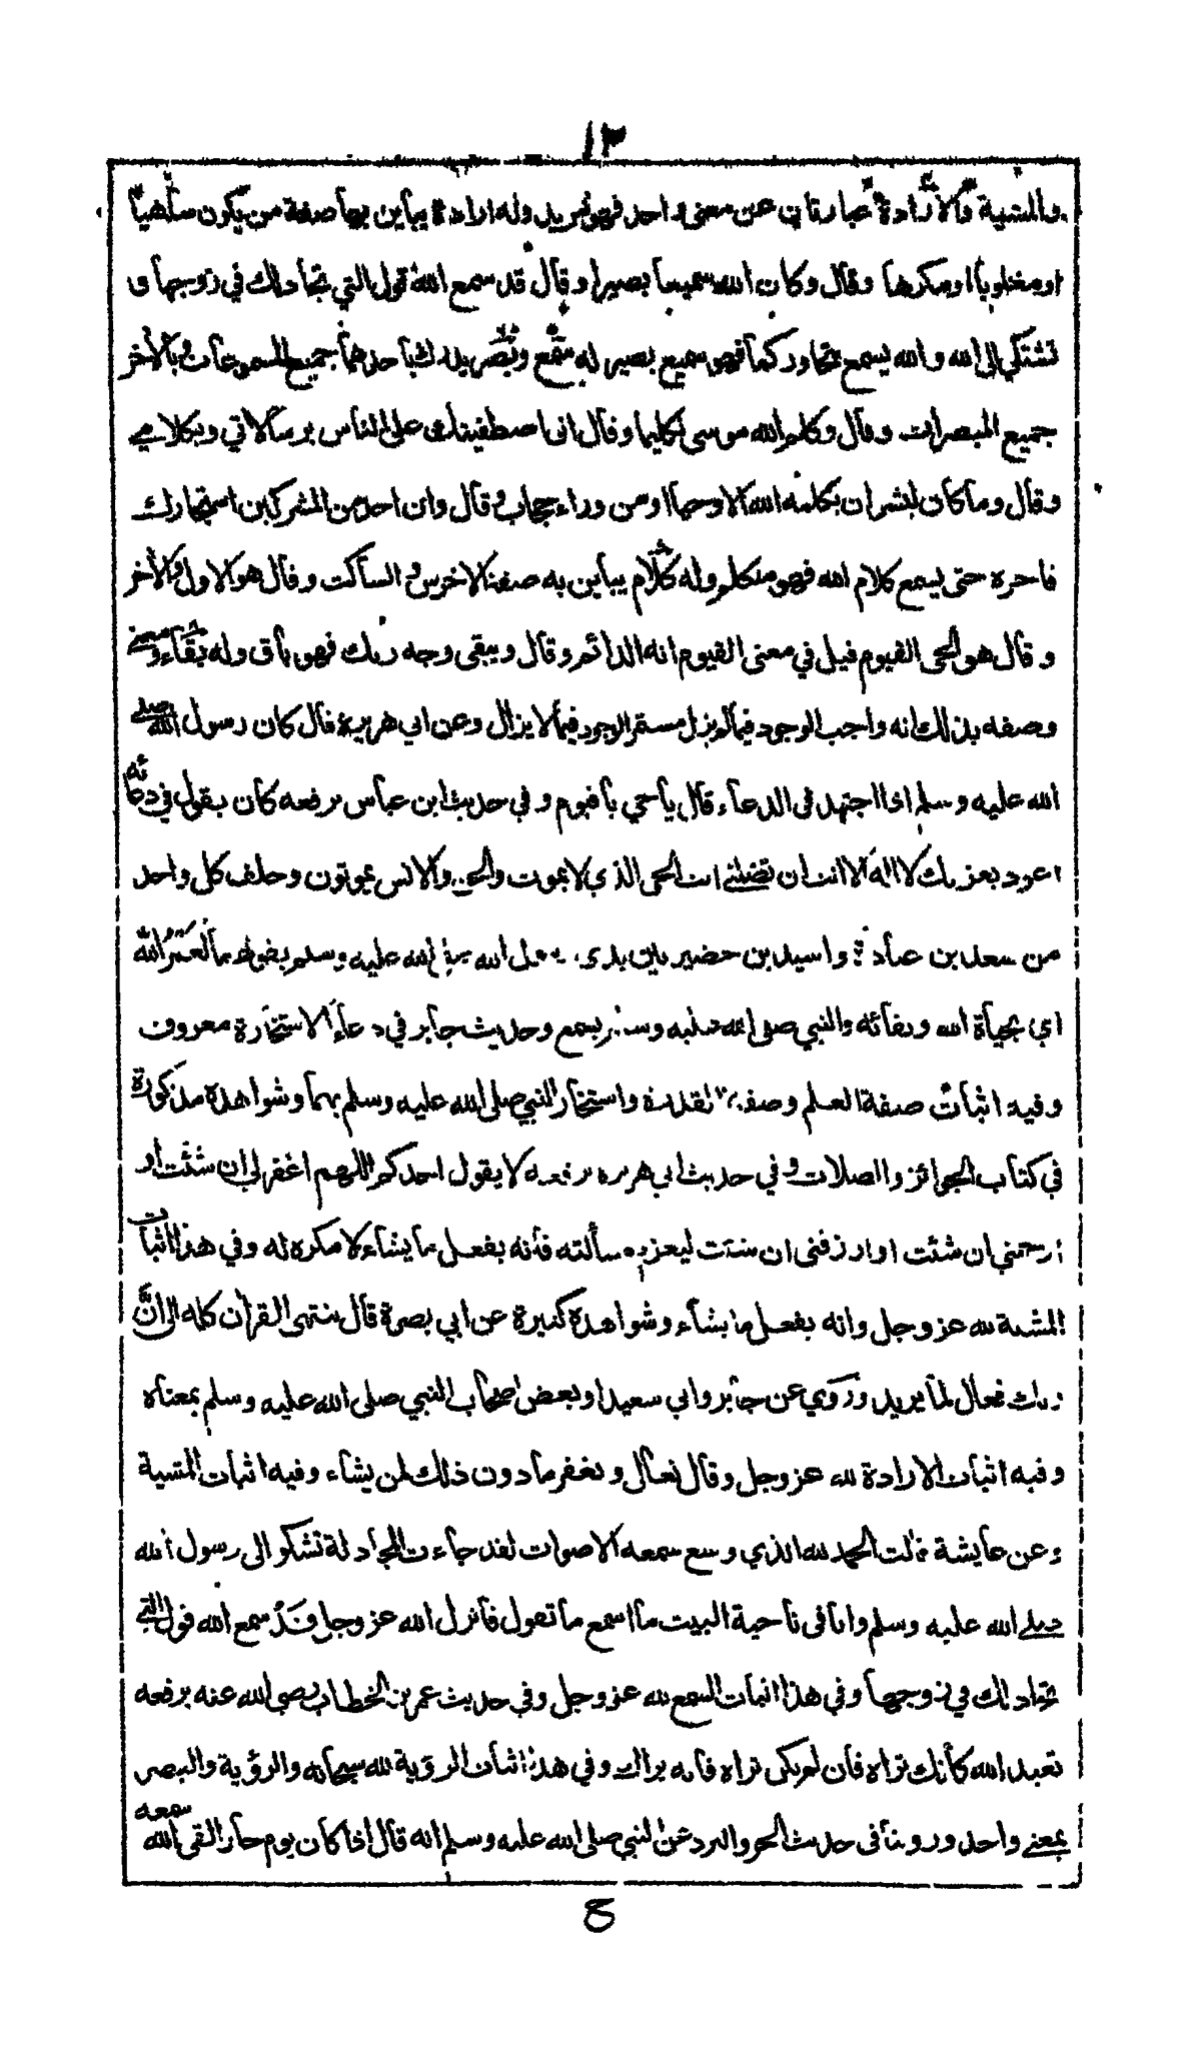 ١٣
والمشية والارادة عبارتان عن معنى واحد فهو مريد وله ارادة يباين بها صفة من يكون ساهيا
او مغلوبا او مكرها وقال وكان الله سميعا بصيرا وقال قد سمع الله قول التي تجادلك في زوجها و
تشتكي الى الله والله يسمع تحاوركما فهو سميع بصير له سمع وبصر يدرك باحدهما جميع المسموعات وبالآخر
جميع المبصرات وقال وكلم الله موسى تكليما وقال انى اصطفيتك على الناس برسالاتي وبكلامي
وقال وما كان لبشر ان يكلمه الله الا وحيا او من وراء حجاب وقال وان احد من المشركين استجارك
فاجره حتى يسمع كلام الله فهو متكلم وله كلام يباين به صفة الاخرس والساكت وقال هو الاول والآخر
وقال هو الحى القيوم قيل في معنى القيوم انه الدائم وقال ويبقى وجه ربك فهو باق وله بقاء ومعنى
وصفه بذلك انه واجب الوجود فيما لم يزل مستمر الوجود فيما لا يزال وعن ابي هريرة قال كان رسول الله صلى
الله عليه وسلم اذا اجتهد فى الدعاء قال يا حي يا قيوم و في حديث ابن عباس يرفعه كان يقول في دعائه
اعوذ بعزتك لا اله الا انت ان تضلني انت الحى الذي لا يموت والجن والانس يموتون وحلف كل واحد
من سعد بن عبادة واسيد بن حضير بين يدى رسول الله صلى الله عليه وسلم بقولهما لعمر الله
اي بحياة الله وبقائه والنبي صلى الله عليه وسلم يسمع وحديث جابر في دعاء الاستخارة معروف
وفيه اثبات صفة العلم وصفة القدرة واستخار النبي صلى الله عليه وسلم بهما وشواهده مذكورة
في كتاب الجوائز والصلات و في حديث ابي هريرة يرفعه لا يقول احدكم اللهم اغفر لي ان شئت او
ارحمني ان شئت او ارزقنى ان شئت ليعزم مسألته فأنه يفعل ما يشاء لا مكره له وفي هذا اثبات
المشية لله عز وجل وانه يفعل ما يشاء وشواهده كثيرة عن ابي بصرة قال ينتهى القرآن كله الى ان
ربك فعال لما يريد وروي عن جابر وابي سعيد او بعض اصحاب النبي صلى الله عليه وسلم بمعناه
وفيه اثبات الارادة لله عز وجل وقال تعالى ويغفر ما دون ذلك لمن يشاء وفيه اثبات المشية
وعن عايشة قالت الحمد لله الذي وسع سمعه الاصوات لقد جاءت المجادلة تشكو الى رسول الله
صلى الله عليه وسلم وانا فى ناحية البيت ما اسمع ما تقول فأنزل الله عز وجل قد سمع الله قول التي
تجادلك في زوجها وفي هذا اثبات السمع لله عز وجل وفي حديث عمر بن الخطاب رضى الله عنه يرفعه
تعبد الله كأنك تراه فأن لم تكن تراه فأنه يراك وفي هذا اثبات الرؤية لله سبحانه والرؤية والبصر
بمعنى واحد وروينا فى حديث الحر والبرد عن النبي صلى الله عليه وسلم انه قال اذا كان يوم حار القى الله سمعه